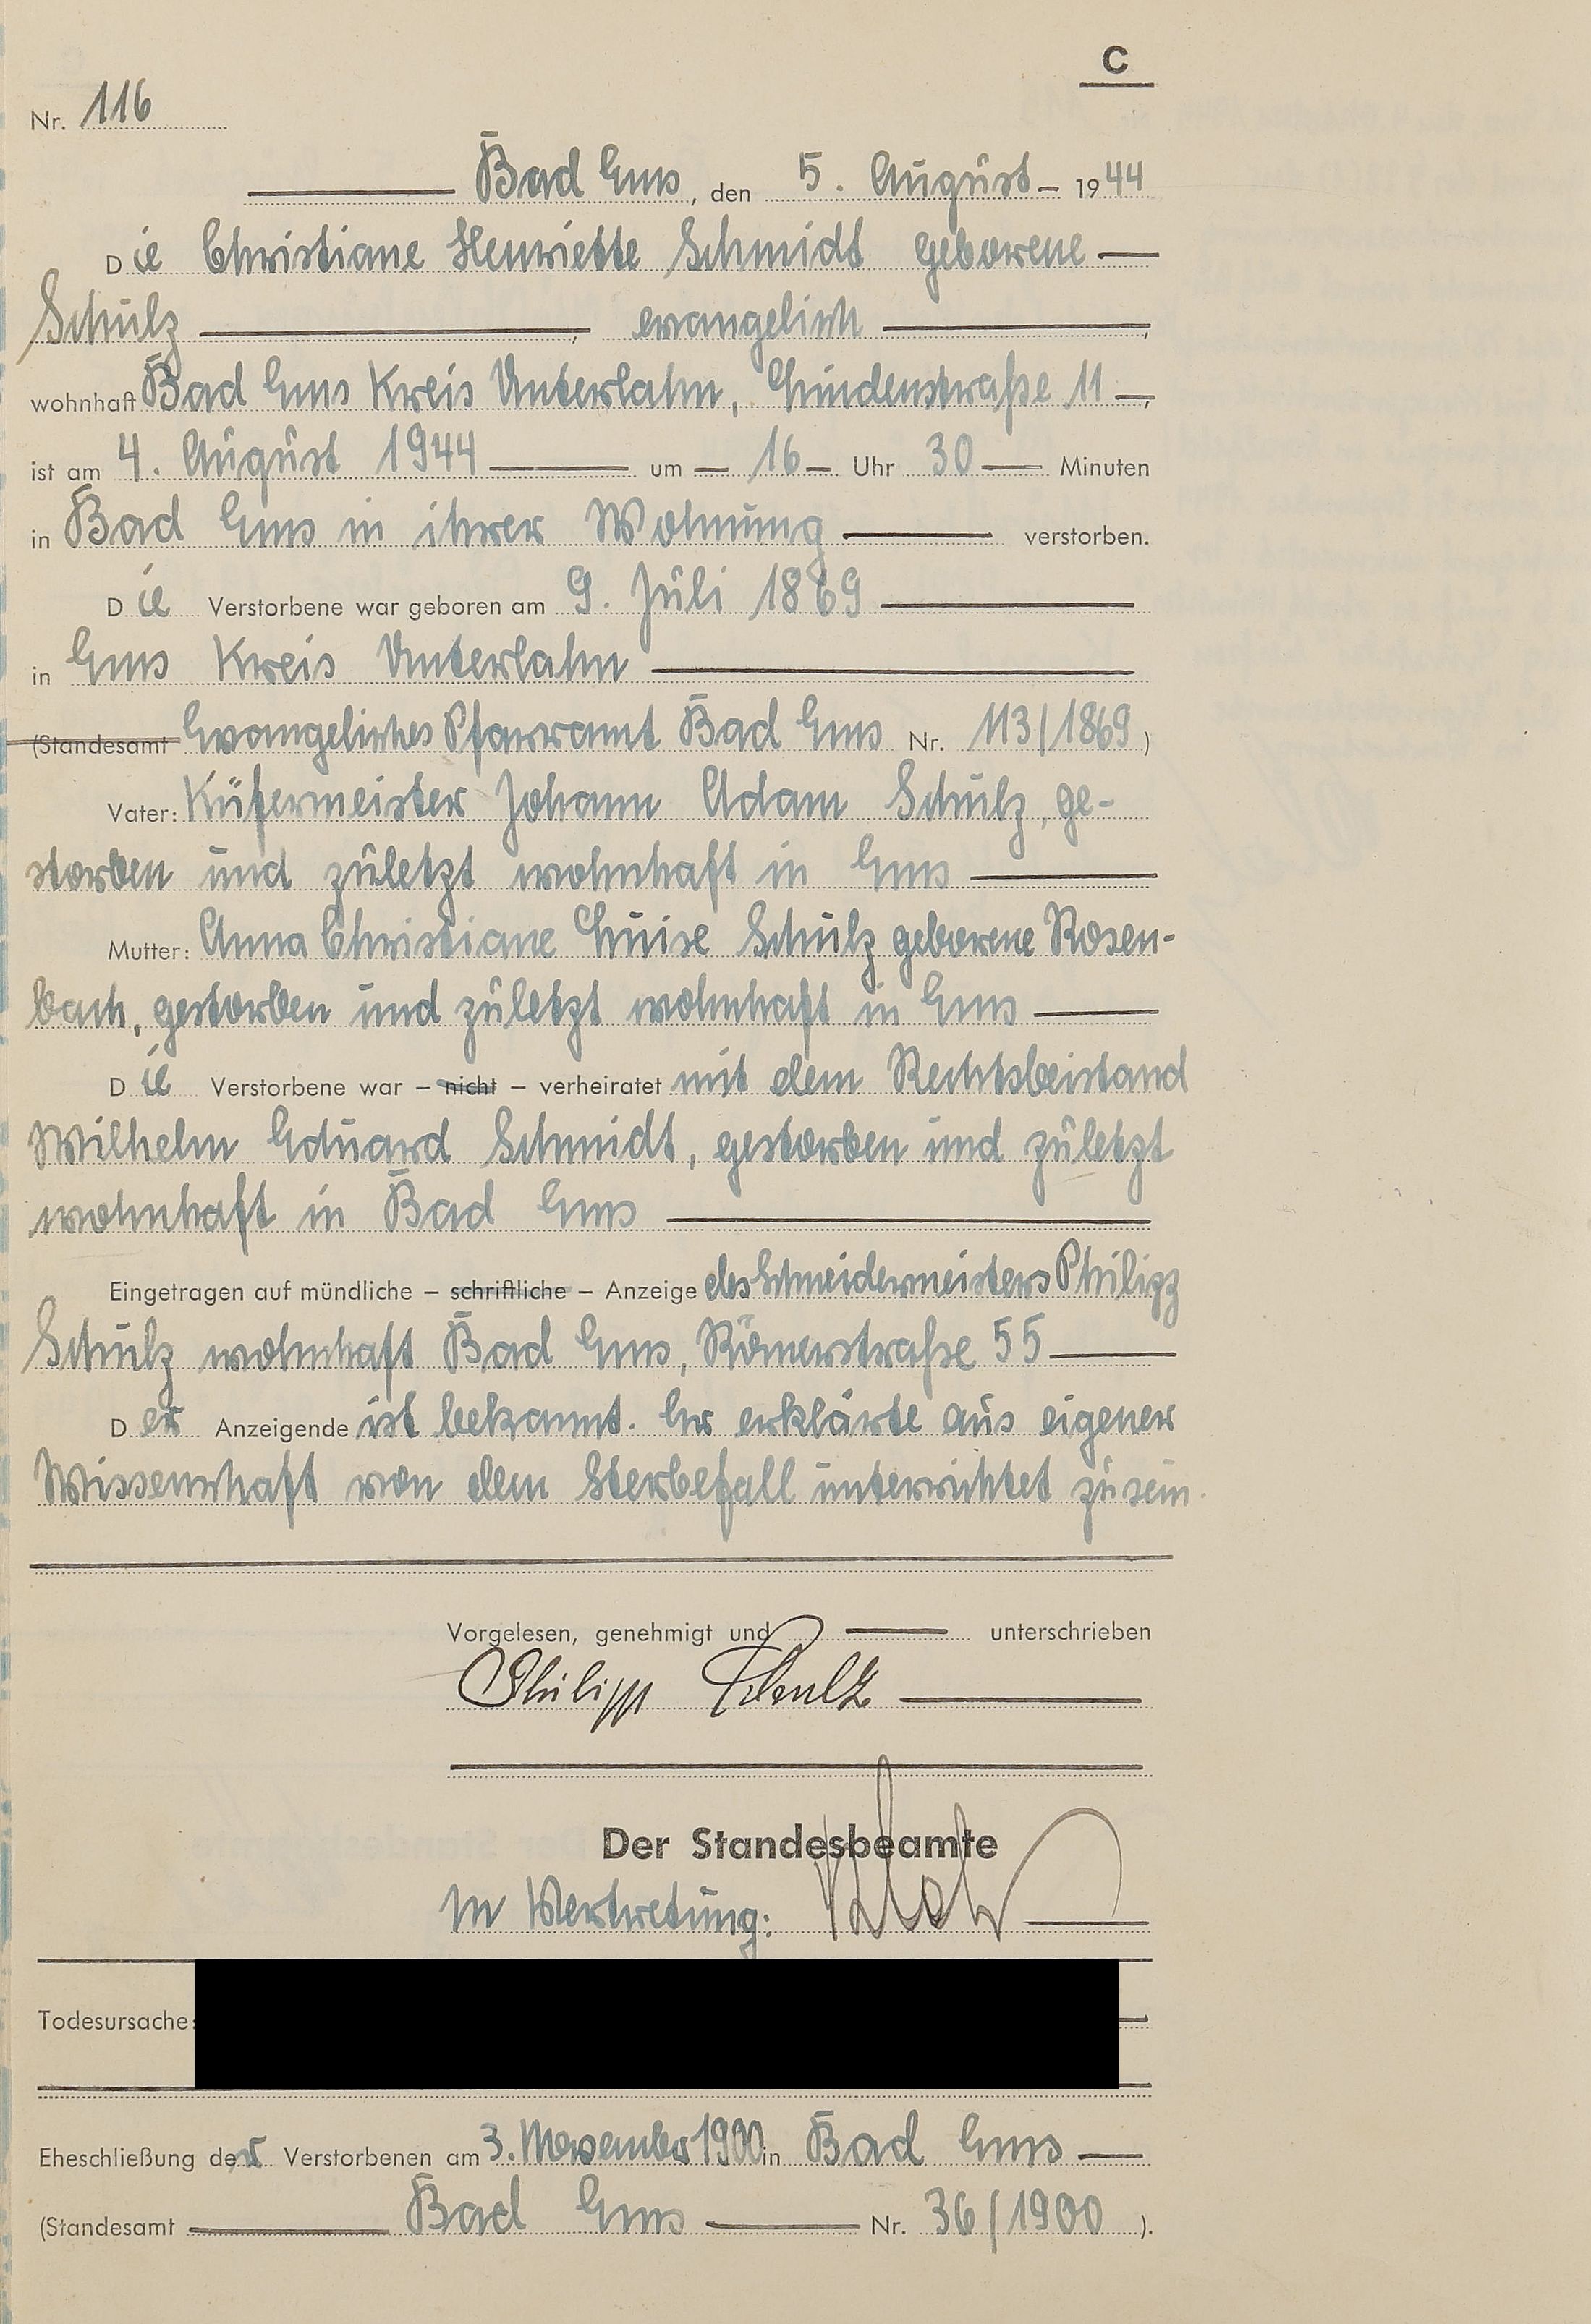 C
Nr. 116
Bad Ems, den 5. August 1944
Die Christiane Henriette Schmidt geborene
Schulz, evangelisch,
wohnhaft Bad Ems Kreis Unterlahn, Lindenstraße 11,
ist am 4. August 1944 um 16 Uhr 30 Minuten
in Bad Ems in ihrer Wohnung verstorben.
Die Verstorbene war geboren am 9. Juli 1869
in Ems Kreis Unterlahn
(Standesamt Evangelisches Pfarramt Bad Ems Nr. 113/1869)
Vater: Küfermeister Johann Adam Schulz, ge-
storben und zuletzt wohnhaft in Ems
Mutter: Anna Christiane Luise Schulz geborene Rosen-
bach, gestorben und zuletzt wohnhaft in Ems
Die Verstorbene war – nicht – verheiratet mit dem Rechtsbeistand
Wilhelm Eduard Schmidt, gestorben und zuletzt
wohnhaft in Bad Ems
Eingetragen auf mündliche – schriftliche – Anzeige des Schneidermeisters Philipp
Schulz wohnhaft Bad Ems, Römerstraße 55
Der Anzeigende ist bekannt. Er erklärte aus eigener
Wissenschaft von dem Sterbefall unterrichtet zu sein.
Vorgelesen, genehmigt und unterschrieben
Philipp Schulz
Der Standesbeamte
In Vertretung:
Todesursache:
Eheschließung der Verstorbenen am 3. November 1900 in Bad Ems
(Standesamt Bad Ems Nr. 36/1900).